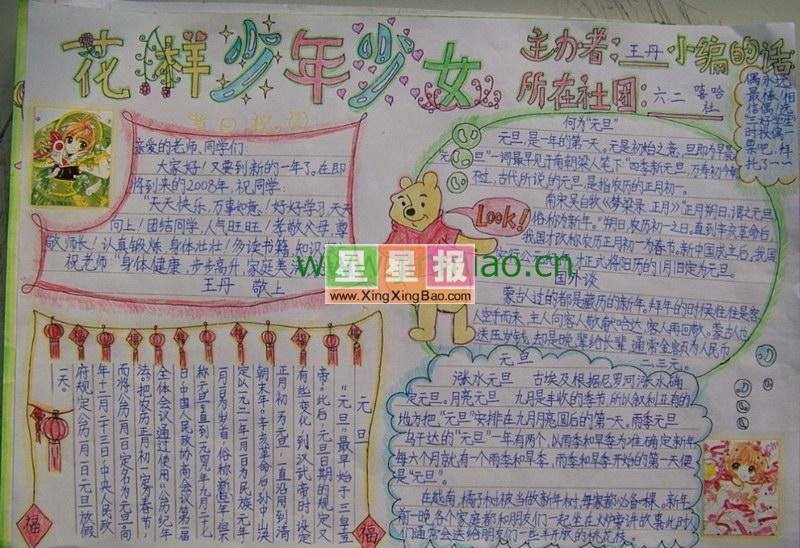 花样少年少女
主办者：王丹
所在社团：六二 嘻哈社
小编的话
节日祝福
亲爱的老师、同学们：
大家好！又要到新的一年了。在即
将到来的2008年，祝同学：
"天天快乐，万事如意，好好学习天天
向上！团结同学，人气旺旺！孝敬父母 尊
敬师长！认真锻炼 身体壮壮！多读书籍 知识
祝老师"身体健康，步步高升，家庭美
王丹 敬上
何为"元旦"
元旦，是一年的第一天。元是初始之意，旦即今早晨
"元旦"一词最早见于南朝梁人笔下"四季新元旦，万寿初今朝
古代所说的元旦，是指农历的正月初一。
南宋吴自牧《梦梁录 正月》"正月朔日，谓之元旦
俗称为新年。"朔日，农历初一之日。直到辛亥革命后，
我国才改称农历正月初一为春节，新中国成立后，我国
才正式将阳历的1月1日定为元旦。
Look!
国外谈
蒙古人过的都是藏历的新年。拜年的时候往往是客
主人向客人敬献哈达，客人再回献。蒙古人也
送压岁钱，却是晚辈给长辈，通常金额为人民币
一二三元。
www.
ao.cn
星星报
www.XingXingBao.com
元旦
"元旦"最早始于三皇五
帝。此后，元旦日期的规定又
有些变化，到汉武帝时 设定
正月初一为元旦，一直沿用到清
朝末年。辛亥革命后孙中山决
定以一九一二年一月一日为民族元年
一月一日为岁首，俗称新年，但不
称元旦。直到一九四九年九月二十七
日，中国人民政协商会议第一届
全体会议通过使用"公历纪年
法"。把农历正月初一定为春节，
而将公历一月一日定名为元旦。同
年十二月二十三日，中央人民政
府规定公历一月一日元旦放假
一天。
福
福
元旦
涨水元旦 古埃及根据尼罗河涨水确
定元旦。月亮元旦 九月是丰收的季节，所以叙利亚有的
地方把"元旦"安排在九月月亮圆后的第一天。雨季元旦
马干达的"元旦"一年有两个，以雨季和旱季为准，确定新年
每六个月就有一个雨季和旱季，雨季和旱季开始的第一天便
是"元旦"。
在越南，橘子树被当做新年树，每家都必备一棵。新年
前一晚各个家庭都和朋友们一起坐在火炉旁讲故事，此时人
们通常会送给朋友们一些半开放的桃花枝。